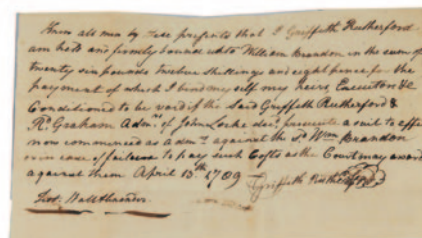 Know all men by these presents that I Griffeth Rutherford
am held and firmly bound unto William Brandon in the sum of
twenty six pounds twelve shillings and eight pence for the
payment of which I bind my self my heirs, Executors &c
Conditioned to be void if the said Griffeth Rutherford &
Rd. Graham Admrs of John Locke decd. prosecute a suit to effect
now commenced as admrs. against the sd. Wm Brandon
or in case of failure to pay such Costs as the Court may award
against them April 13th 1769
Griffeth Rutherford
Test.